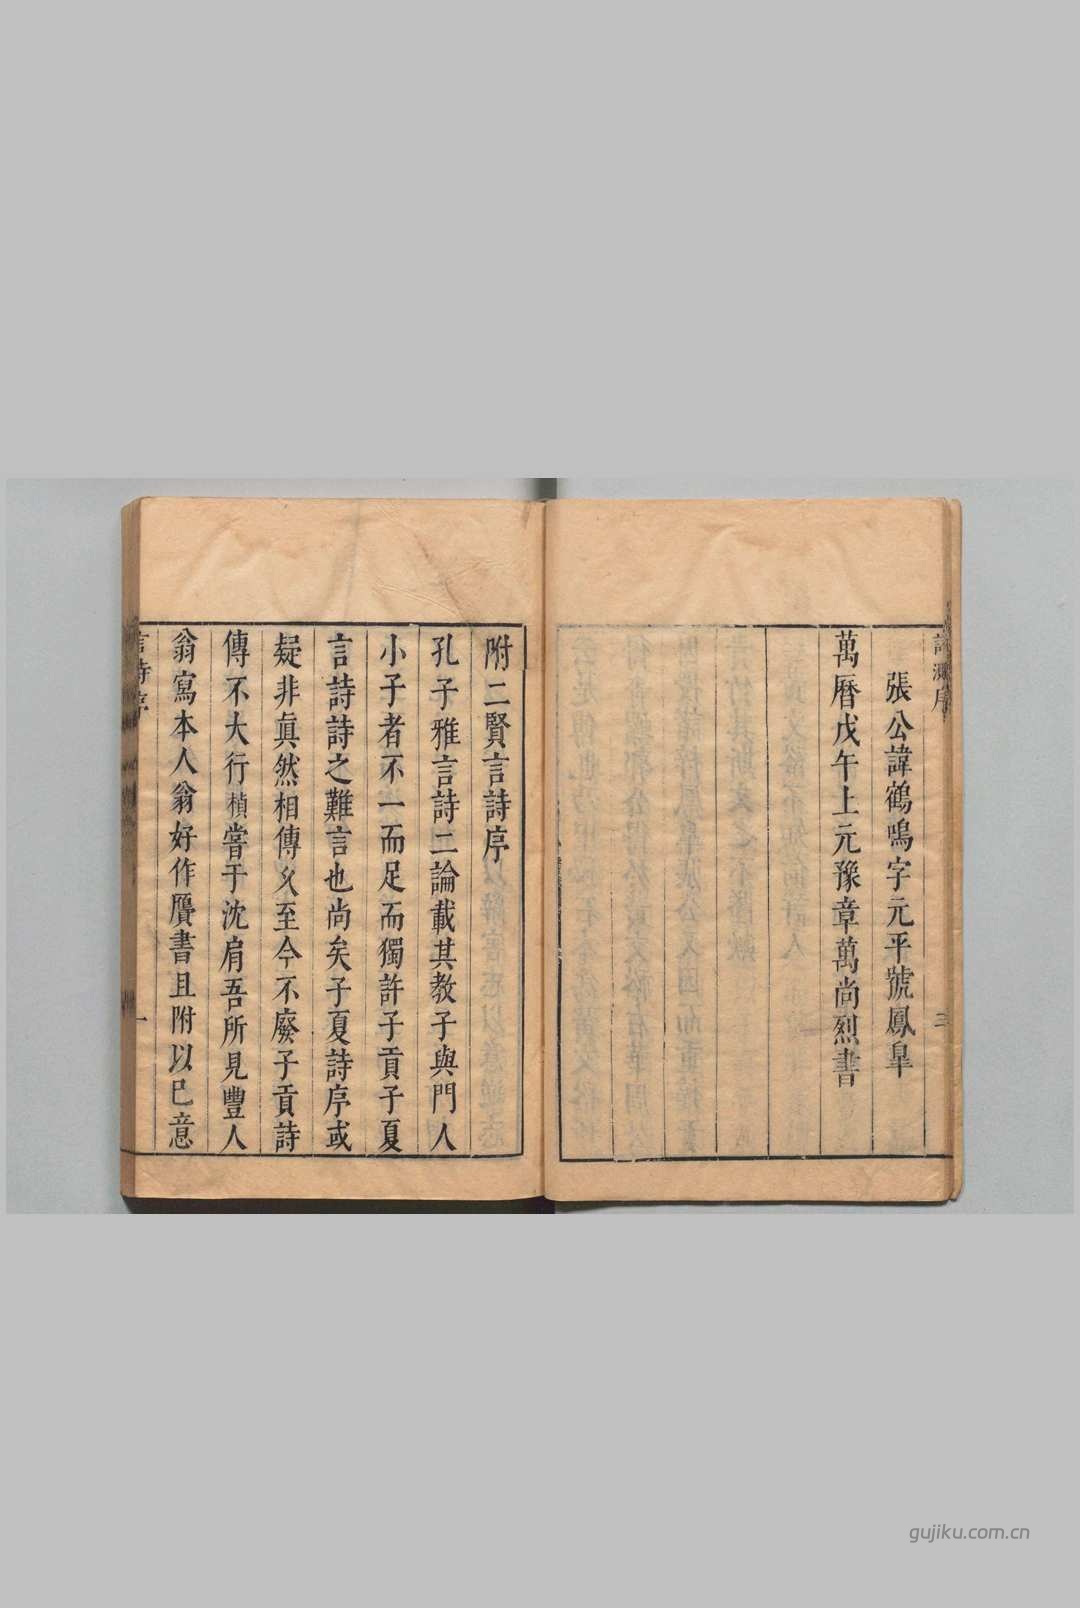 張公諱鶴鳴字元平號鳳皐
萬曆戊午上元豫章萬尚烈書
三
附二賢言詩序
孔子雅言詩二論載其教子與門人
小子者不一而足而獨許子貢子夏
言詩詩之難言也尚矣子夏詩序或
疑非眞然相傳乆至今不廢子貢詩
傳不大行楨嘗于沈肩吾所見豐人
翁寫本人翁好作贗書且附以巳意
言詩序
一
gujiku.com.cn